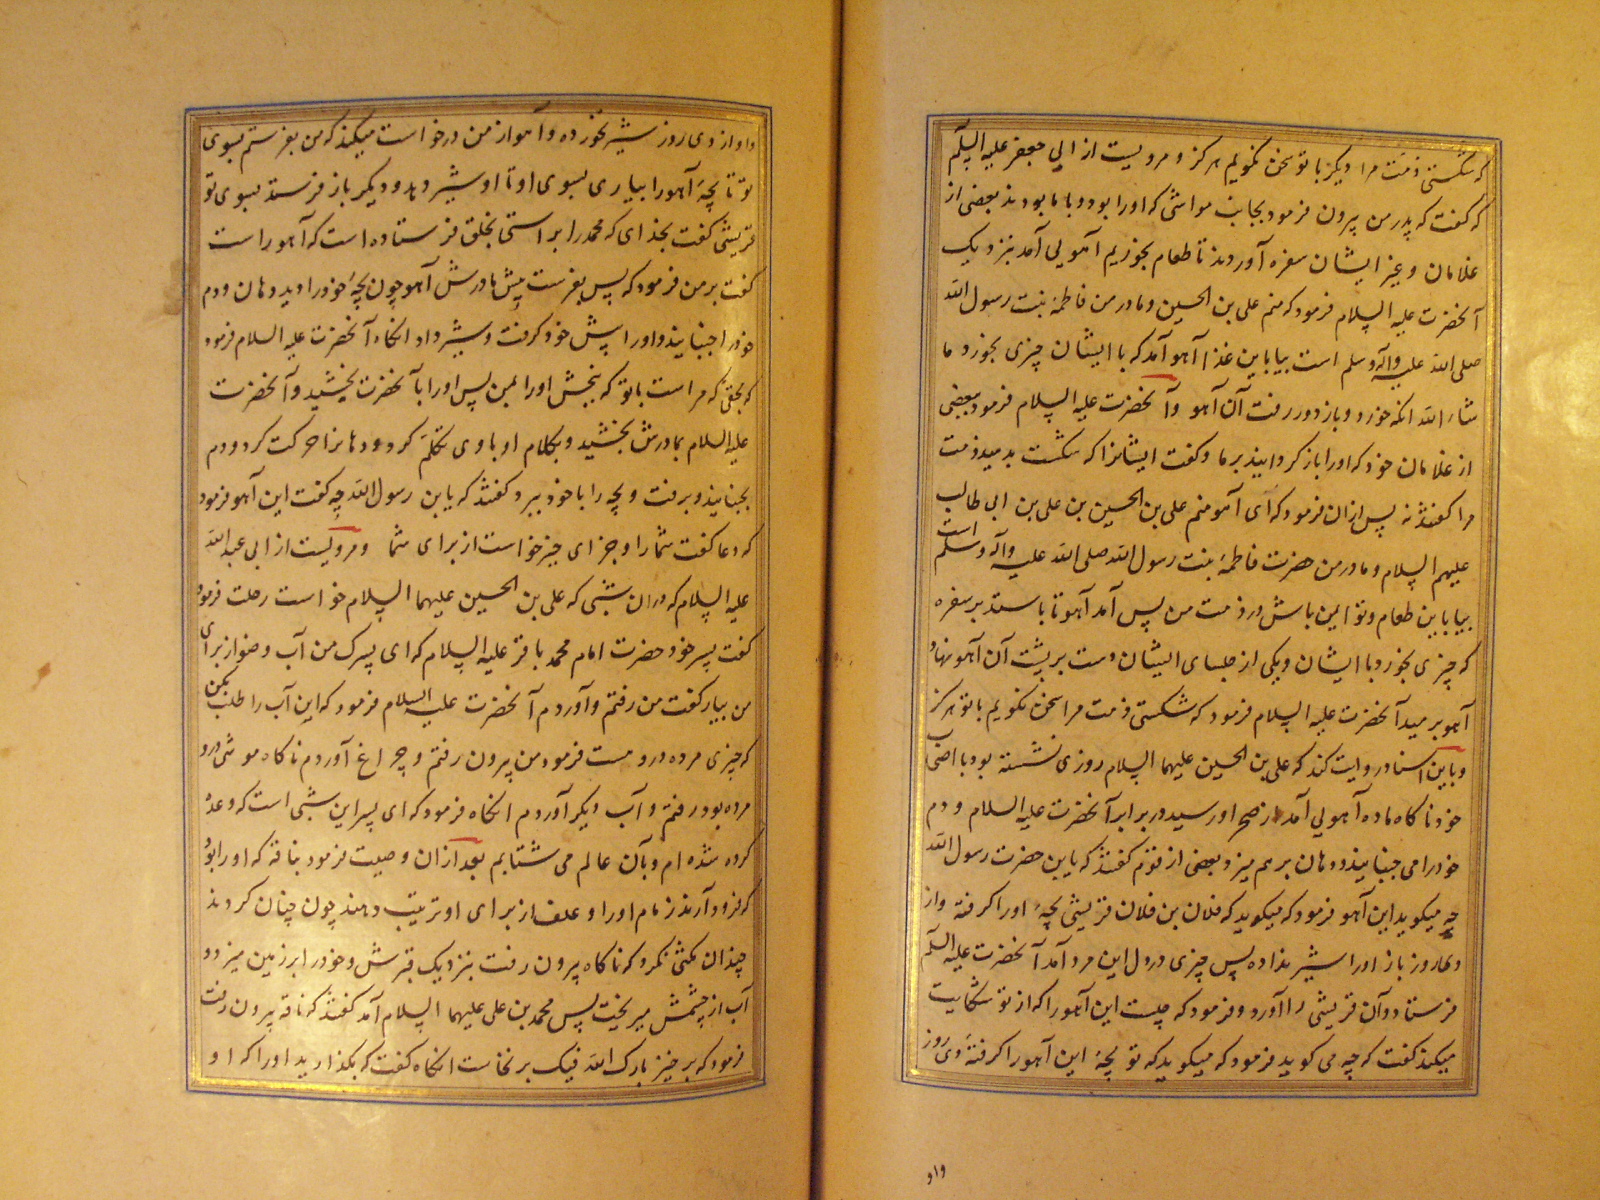 که شکستی ذمت مرا دیگر با تو سخن نگویم هرگز و مرویست از ابی جعفر علیه السلم
که گفت که پدر من بیرون فرمود بجانب مواشی که او را بود و با ما بودند بعضی از
غلامان و غیر ایشان سفره آوردند تا طعام بخوریم آهویی آمد بنزدیک
آنحضرت علیه السلام فرمود که منم علی بن الحسین و مادر من فاطمه بنت رسول الله
صلی الله علیه وآله وسلم است بیا باین غذا آهو آمد که با ایشان چیزی بخورد ما
شاء الله آنکه خورد و باز دور رفت آن آهو و آنحضرت علیه السلام فرمود ببعضی
از غلامان خود که او را باز گردانید بر ما و گفت ایشانرا که شکست بدمید ذمت
مرا گفتند نه پس ازان فرمود که ای آهو منم علی بن الحسین بن علی بن ابی طالب
علیهم السلام و مادر من حضرت فاطمه بنت رسول الله صلی الله علیه وآله وسلم است
بیا باین طعام و تو ایمن باش در ذمت من پس آمد آهو تا باستد بر سفره
که چیزی بخورد با ایشان و یکی از جلسای ایشان دست بر پشت آن آهو نهاد
آهو برمید آنحضرت علیه السلام فرمود که شکستی ذمت مرا سخن نگویم با تو هرگز
و باین اسناد روایت کند که علی بن الحسین علیهما السلام روزی نشسته بود با اصحاب
خود ناگاه ماده آهویی آمد از صحرا و رسید در برابر آنحضرت علیه السلام و دم
خود را می جنبانید و دهان بر هم میزد بعضی از قوم گفتند که یابن حضرت رسول الله
چه میگوید این آهو فرمود که میگوید که فلان بن فلان قریشی بچه او را گرفته و از
دیروز باز او را شیر نداده پس چیزی در دل این مرد آمد آنحضرت علیه السلم
فرستاد و آن قریشی را آورد و فرمود که چیست این آهو را که از تو شکایت
میکند گفت که چه می گوید فرمود که میگوید که تو بچه این آهو را گرفته دی روز
واو
و او از دی روز شیر نخورده و آهو از من درخواست میکند که من بفرستم بسوی
تو تا بچه آهو را بیاری بسوی او تا او شیر دهد و دیگر باز فرستد بسوی تو
قریشی گفت بخدای که محمد را براستی بخلق فرستاده است که آهو راست
گفت بر من فرمود که پس بفرست پیش مادرش آهو چون بچه خود را دید دهان و دم
خود را جنبانید و او را پیش خود گرفت و شیر داد آنکاه آنحضرت علیه السلام فرمود
که بحقی که مراست با تو که ببخش او را بمن پس او را بآنحضرت بخشید و آنحضرت
علیه السلام بمادرش بخشید و بکلام او با وی تکلم کرد و دهانرا حرکت کرد و دم
بجنبانید و برفت و بچه را با خود ببرد گفتند که یابن رسول الله چه گفت این آهو فرمود
که دعا گفت شما را و جزای خیر خواست از برای شما و مرویست از ابی عبدالله
علیه السلام که در ان شبی که علی بن الحسین علیهما السلام خواست رحلت فرمود
گفت پسر خود حضرت امام محمد باقر علیه السلام که ای پسرک من آب وضو از برای
من بیار گفت من رفتم و آوردم آنحضرت علیه السلام فرمود که این آب را طلب مکن
که چیزی مرده دروست فرمود من بیرون رفتم و چراغ آوردم ناگاه موشی درو
مرده بود رفتم و آب دیگر آوردم آنکاه فرمود که ای پسر این شبی است که وعده
کرده شده ام و بآن عالم می شتابم بعد ازان وصیت فرمود بناقه که او را بود
که فرود آرند زمام او را و علف از برای او ترتیب دهند چون چنان کردند
چندان مکثی نکرد که ناگاه بیرون رفت بنزدیک قبرش و خود را بر زمین میزد و
آب از چشمش میریخت پس محمد بن علی علیهما السلام آمد گفتند که ناقه بیرون رفت
فرمود که برخیز بارک الله فیک برنخاست آنکاه گفت که بگذارید او را که او